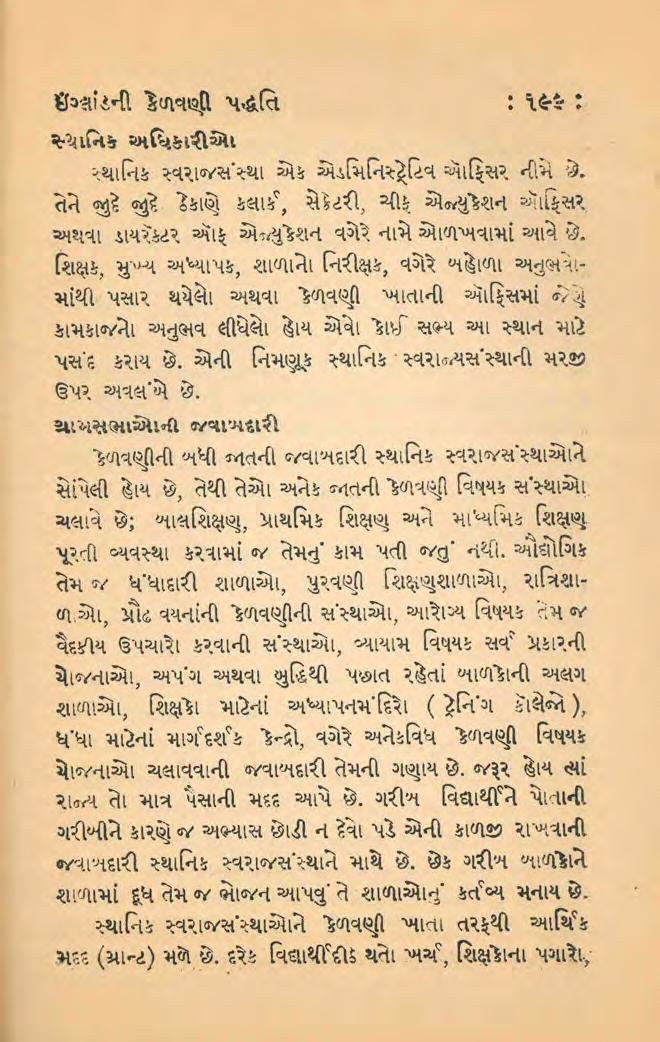 ઇંગ્લાંડની કેળવણી પદ્ધતિ : ૧૯૬ :
સ્થાનિક અધિકારીઓ
સ્થાનિક સ્વરાજસંસ્થા એક એડમિનિસ્ટ્રેટિવ ઑફિસર નીમે છે.
તેને જુદે જુદે ઠેકાણે કલાર્ક, સેક્રેટરી, ચીફ એજ્યુકેશન ઑફિસર
અથવા ડાયરૅક્ટર ઑફ એજ્યુકેશન વગેરે નામે ઓળખવામાં આવે છે.
શિક્ષક, મુખ્ય અધ્યાપક, શાળાનો નિરીક્ષક, વગેરે બહોળા અનુભવો-
માંથી પસાર થયેલો અથવા કેળવણી ખાતાની ઑફિસમાં જેણે
કામકાજનો અનુભવ લીધેલો હોય એવો કોઈ સભ્ય આ સ્થાન માટે
પસંદ કરાય છે. એની નિમણૂક સ્થાનિક સ્વરાજ્યસંસ્થાની મરજી
ઉપર અવલંબે છે.
ગ્રામસભાઓની જવાબદારી
કેળવણીની બધી જાતની જવાબદારી સ્થાનિક સ્વરાજસંસ્થાઓને
સોંપેલી હોય છે, તેથી તેઓ અનેક જાતની કેળવણી વિષયક સંસ્થાઓ
ચલાવે છે; બાલશિક્ષણ, પ્રાથમિક શિક્ષણ અને માધ્યમિક શિક્ષણ
પૂરતી વ્યવસ્થા કરવામાં જ તેમનું કામ પતી જતું નથી. ઔદ્યોગિક
તેમ જ ધંધાદારી શાળાઓ, પુરવણી શિક્ષણશાળાઓ, રાત્રિશા-
ળાઓ, પ્રૌઢ વયનાંની કેળવણીની સંસ્થાઓ, આરોગ્ય વિષયક તેમ જ
વૈદકીય ઉપચારો કરવાની સંસ્થાઓ, વ્યાયામ વિષયક સર્વ પ્રકારની
યોજનાઓ, અપંગ અથવા બુદ્ધિથી પછાત રહેતાં બાળકોની અલગ
શાળાઓ, શિક્ષકો માટેનાં અધ્યાપનમંદિરો ( ટ્રેનિંગ કૉલેજો ),
ધંધા માટેનાં માર્ગદર્શક કેન્દ્રો, વગેરે અનેકવિધ કેળવણી વિષયક
યોજનાઓ ચલાવવાની જવાબદારી તેમની ગણાય છે. જરૂર હોય ત્યાં
રાજ્ય તો માત્ર પૈસાની મદદ આપે છે. ગરીબ વિદ્યાર્થીને પોતાની
ગરીબીને કારણે જ અભ્યાસ છોડી ન દેવો પડે એની કાળજી રાખવાની
જવાબદારી સ્થાનિક સ્વરાજસંસ્થાને માથે છે. છેક ગરીબ બાળકોને
શાળામાં દૂધ તેમ જ ભોજન આપવું તે શાળાઓનું કર્તવ્ય મનાય છે.
સ્થાનિક સ્વરાજસંસ્થાઓને કેળવણી ખાતા તરફથી આર્થિક
મદદ (ગ્રાન્ટ) મળે છે. દરેક વિદ્યાર્થીદીઠ થતો ખર્ચ, શિક્ષકોના પગારો,